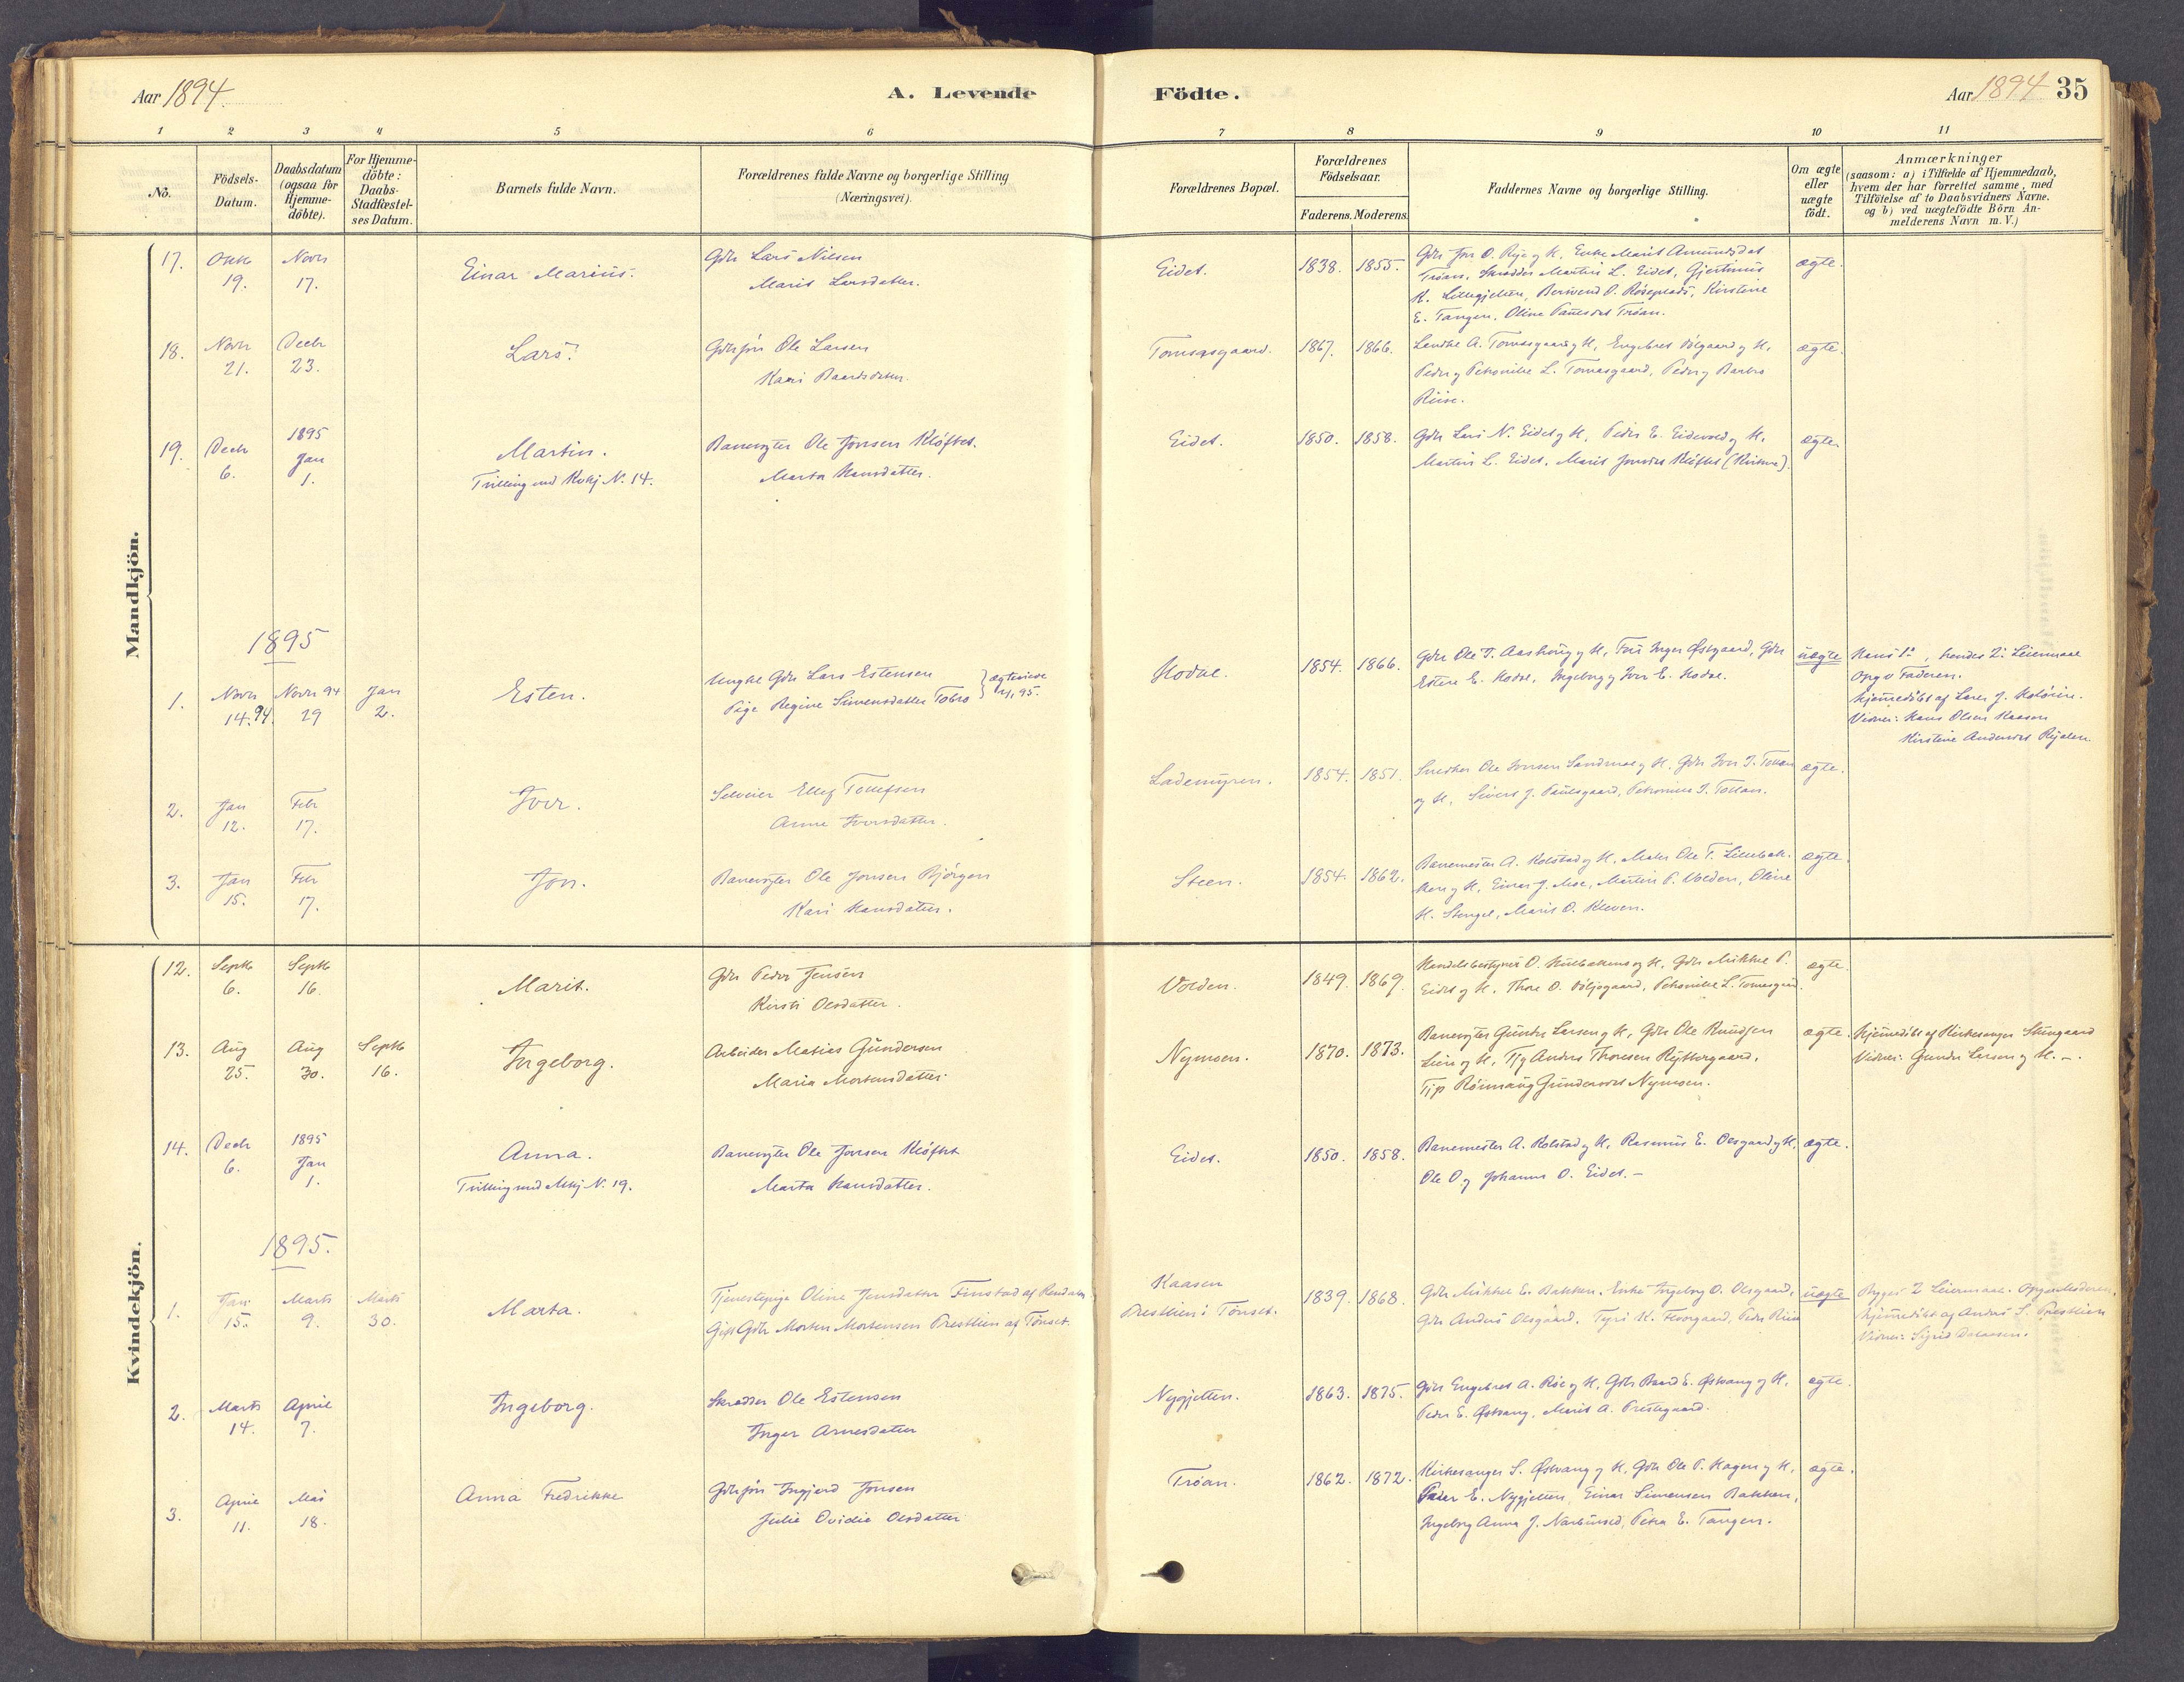 Aar 1894.
A. Levende
Födte.
Aar 1894 35
1 2 3 4 5 6 7 8 9 10 11
No.
Födsels-Datum.
Daabsdatum (ogsaa for Hjemme-döbte).
For Hjemme-döbte: Daabs-Stadfæstel-ses Datum.
Barnets fulde Navn.
Forældrenes fulde Navne og borgerlige Stilling
(Næringsvei).
Forældrenes Bopæl.
Forældrenes Födselsaar.
Faderens. Moderens.
Faddernes Navne og borgerlige Stilling.
Om ægte eller uægte födt.
Anmærkninger
(saasom: a) i Tilfælde af Hjemmedaab,
hvem der har forrettet samme, med
Tilföielse af to Daabsvidners Navne.
og b) ved uægtefödte Börn An-
melderens Navn m. V.)
Mandkjön.
17. Oktb 19. Novr 17. Einar Marius. Gdr Lars Nilsen
Marit Larsdatter.
Eidet. 1838. 1855. Gdr Jon O. Rye og H, Enke Marit Amundsdat
Tröan, Skrædder Martin L. Eidet, Gjertinus
E. Tangen, Oline Paulsdat Tröan.
ægte.
18. Novr 21. Decb 23. Lars. Gdrsön Ole Larsen
Kari Baardsdatter.
Tomasgaard. 1867. 1866. A. Tomasgaard og H, Engebret
Peder og Petronille L. Tomasgaard, Peder og Barbro
ægte.
19. Decb 6. 1895 Jan 1. Martin.
Tvilling med Kvkj N. 14.
Banevogter Ole Jonsen Klöftet.
Marta Hansdatter.
Eidet. 1850. 1858. Gdr Lars N. Eidet og H, Peder E. Eidevold og H.
Martin L. Eidet. Marit Jonsdat Klöftet
ægte
1895
1. Novr 14. 94. Novr 94 29 Jan 2. Esten. Ungkl Gdr Lars Estensen
Pige Regine Simensdatter Tobro
Hodal. 1854. 1866. Gdr Ole T. og H, Inger Østgaard, Gdr
Esten E. Hodal, Ingeborg og Iver E. Hodal.
uægte Hans 1ste, hendes 2. Leiermaal
Opg v Faderen.
Hjemmedöbt af Lars J.
Vidner: Hans Olsen Kaasen
Kirstine Andersdat
2. Jan 12. Febr 17. Iver. Selveier Ellef Tollefsen
Anne Iversdatter.
Lademyren. 1854. 1851. Snedker Ole Iversen og H. Gdr Iver T. Tollan
og H, Sivert J. Paulsgaard, T. Tollan.
ægte.
3. Jan 15. Febr 17. Jon. Banevogter Ole Jonsen Björgen
Kari Hansdatter.
Steen. 1854. 1862. Banemester A. Kolstad og H. Maler Ole T.
og H, Einar J. Moe, Martin P. Volden, Oline
H. Stengel, Marit O. Kleven.
ægte
Kvindekjön.
12. Septb 6. Septb 16. Marit. Gdr Peder Jensen
Kirsti Olsdatter.
Volden. 1849. 1869. Handelsbestyrer O. og H, Gdr Mikkel P.
Eidet og H. Thore O. Petronille L. Tomasgaard.
ægte.
13. Aug 25. Aug 30. Septb 16. Ingeborg. Arbeider Matias Gundersen
Maria Mortensdatter.
Nymoen. 1870. 1873. Banevogter Gunder Larsen og H, Gdr Ole Knudsen
og H, Anders Thoresen Ryttergaard,
Gundersdat Nymoen.
ægte. Hjemmedöbt af Kirkesanger
Vidner: Gunder Larsen og H. -.
14. Decb 6. 1895 Jan 1. Anna.
Tvilling med Mkj N. 19.
Banevogter Ole Jonsen Klöftet
Marta Hansdatter.
Eidet. 1850. 1858. Banemester A. Kolstad og H. Rasmus E. Olsgaard og H.
Ole O. og Johanne O. Eidet. -
ægte.
1895.
1. Jan 15. Marts 9. Marts 30. Marta. Tjenestepige Oline Jensdatter Finstad af Rendalen
Gift Gdr Morten Mortensen Prestlien af Tönset.
Kaasen
Prestlien i Tönset.
1839. 1868. Gdr Mikkel E. Bakken. Enke Ingeborg O. Olsgaard,
Gdr Anders Olsgaard. K. Floorgaard, Peder
uægte 2 Leiermaal. Opg v Moderen.
Hjemmedöbt af Anders S. Prestlien
Vidner: Sigrid
2. Marts 14. April 7. Ingeborg. Skrædder Ole Estensen
Inger Arnesdatter
Nygjelten. 1863. 1875. Gdr Engebret A. og H, Gdr Baard E. Østvang og H.
Peder E. Østvang, Marit A. Prestegaard.
ægte.
3. April 11. Mai 18. Anna Fredrikke Gdrsön Ingjerd Jonsen
Julie Ovidie Olsdatter
Tröan. 1862. 1872. Kirkesanger S. Østvang og H, Gdr Ole P. Hagen og H,
Peder E. Nygjelten, Einar Simensen Bakken,
Ingeborg Anna J. Narbuvold, Petra E. Tangen.
ægte.